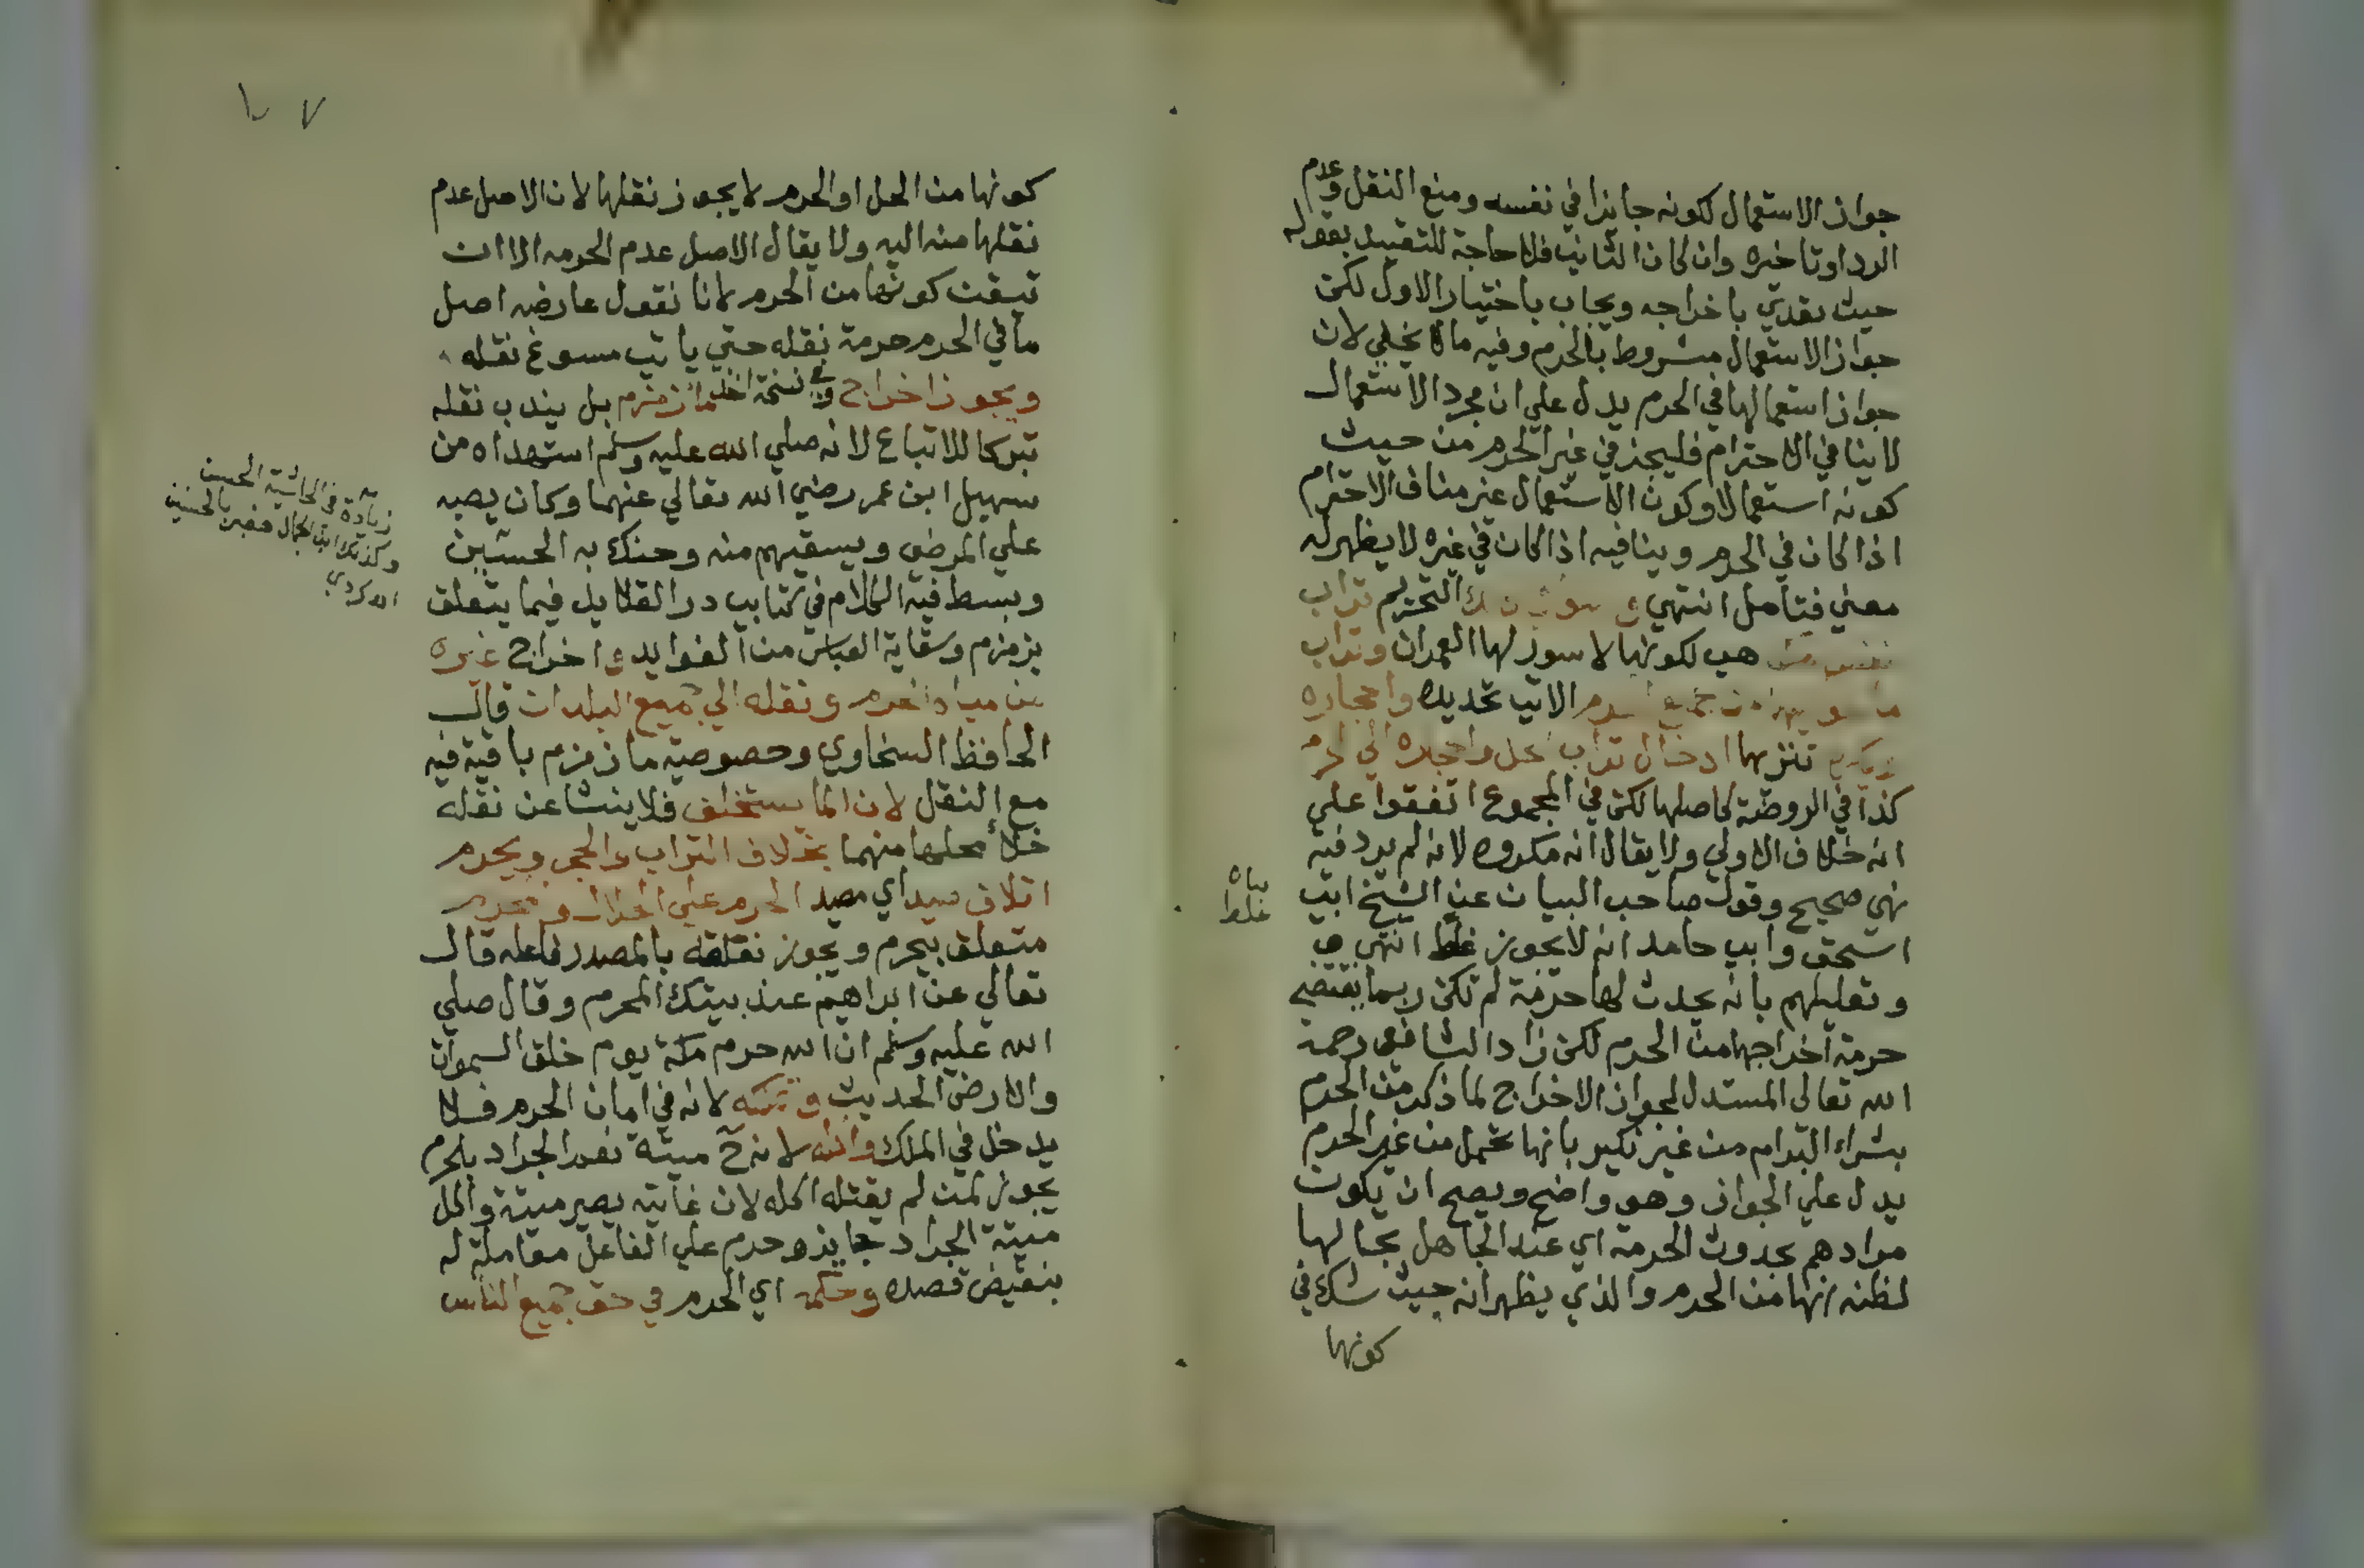 جواز الاستعمال لكونه جايزا في نفسه ومنع النقل وعدم
الرد او تاخره وان كان الثاني فلا حاجة للتقييد بقوله
حيث تعدي باخراجه ويجاب باختيار الاول لكن
جواز الاستعمال مشروط بالحرم وفيه ما لا يخفي لان
جواز استعمالها في الحرم يدل علي ان مجرد الاستعمال
لا ينافي الاحترام فليجز في غير الحرم من حيث
كونه استعمالا وكون الاستعمال غير مناف الاحترام
اذا كان في الحرم وينافيه اذا كان في غيره لا يظهر له
معني فتامل انتهي التحريم تراب
هب لكونها لا سور لها العمران وتراب
الاتي تحديده واحجاره
تنزيها ادخال تراب الحل واحجاره الي الحرم
كذا في الروضة كاصلها لكن في المجموع اتفقوا علي
انه خلاف الاولي ولا يقال انه مكروه لانه لم يرد فيه
نهي صحيح وقول صاحب البيان عن الشيخ ابي
اسحق وابي حامد انه لا يجوز غلط انتهي
وتعليلهم بانه يحدث لها حرمة لم تكن ربما يقتضي
حرمة اخراجها من الحرم لكن زاد الشافعي رحمة
الله تعالي المستدل لجواز الاخراج لما ذكر من الحرم
بشراء البرام من غير نكير بانها تحمل من غير الحرم
يدل علي الجواز وهو واضح ويصح ان يكون
مرادهم بحدوث الحرمة اي عند الجاهل بحالها
لظنه انها من الحرم والذي يظهر انه حيث شك في
كونها
غلط
١٠٧
كونها من الحل او الحرم لا يجوز نقلها لان الاصل عدم
نقلها منه اليه ولا يقال الاصل عدم الحرمه الا ان
تيقنت كونها من الحرم لانا نقول عارضه اصل
ما في الحرم حرمة نقله حتي ياتي مسوغ نقله
ويجوز اخراج وفي نسخة ماء زمزم بل يندب نقله
تبركا للاتباع لانه صلي الله عليه وسلم استهداه من
سهيل ابن عمر رضي الله تعالي عنهما وكان يصبه
علي المرضي ويسقيهم منه وحنك به الحسنين
وبسط فيه الكلام في كتابي در القلايل فيما يتعلق
بزمزم وسقاية العباس من الفوايد واخراج غيره
من مياه الحرم ونقله الي جميع البلدان قال
الحافظ السخاوي وخصوصية ما زمزم باقية فيه
مع النقل لان الما يستخلف فلا ينشا عن نقله
خلا محلها منهما بخلاف التراب والحجر ويحرم
اتلاف صيد اي مصيد الحرم علي الحلال والمحرم
متعلق بيحرم ويجوز تعلقه بالمصدر فاعله قال
تعالي عن ابراهيم عند بيتك المحرم وقال صلي
الله عليه وسلم ان الله حرم مكة يوم خلق السموات
والارض الحديث وتملكه لانه في امان الحرم فلا
يدخل في الملك واكله لانه ح ميتة نعم الجراد بالحرم
يجوز لمن لم يقتله اكله لان غايته يصير ميتة واكل
ميتة الجراد جايز وحرم علي الفاعل معاملة له
بنقيض قصده وحكمه اي الحرم في حق جميع الناس
زيادة في الحاشية الحسن
وكذلك ابن الجمال فعبر بالحسنين
اه كردي